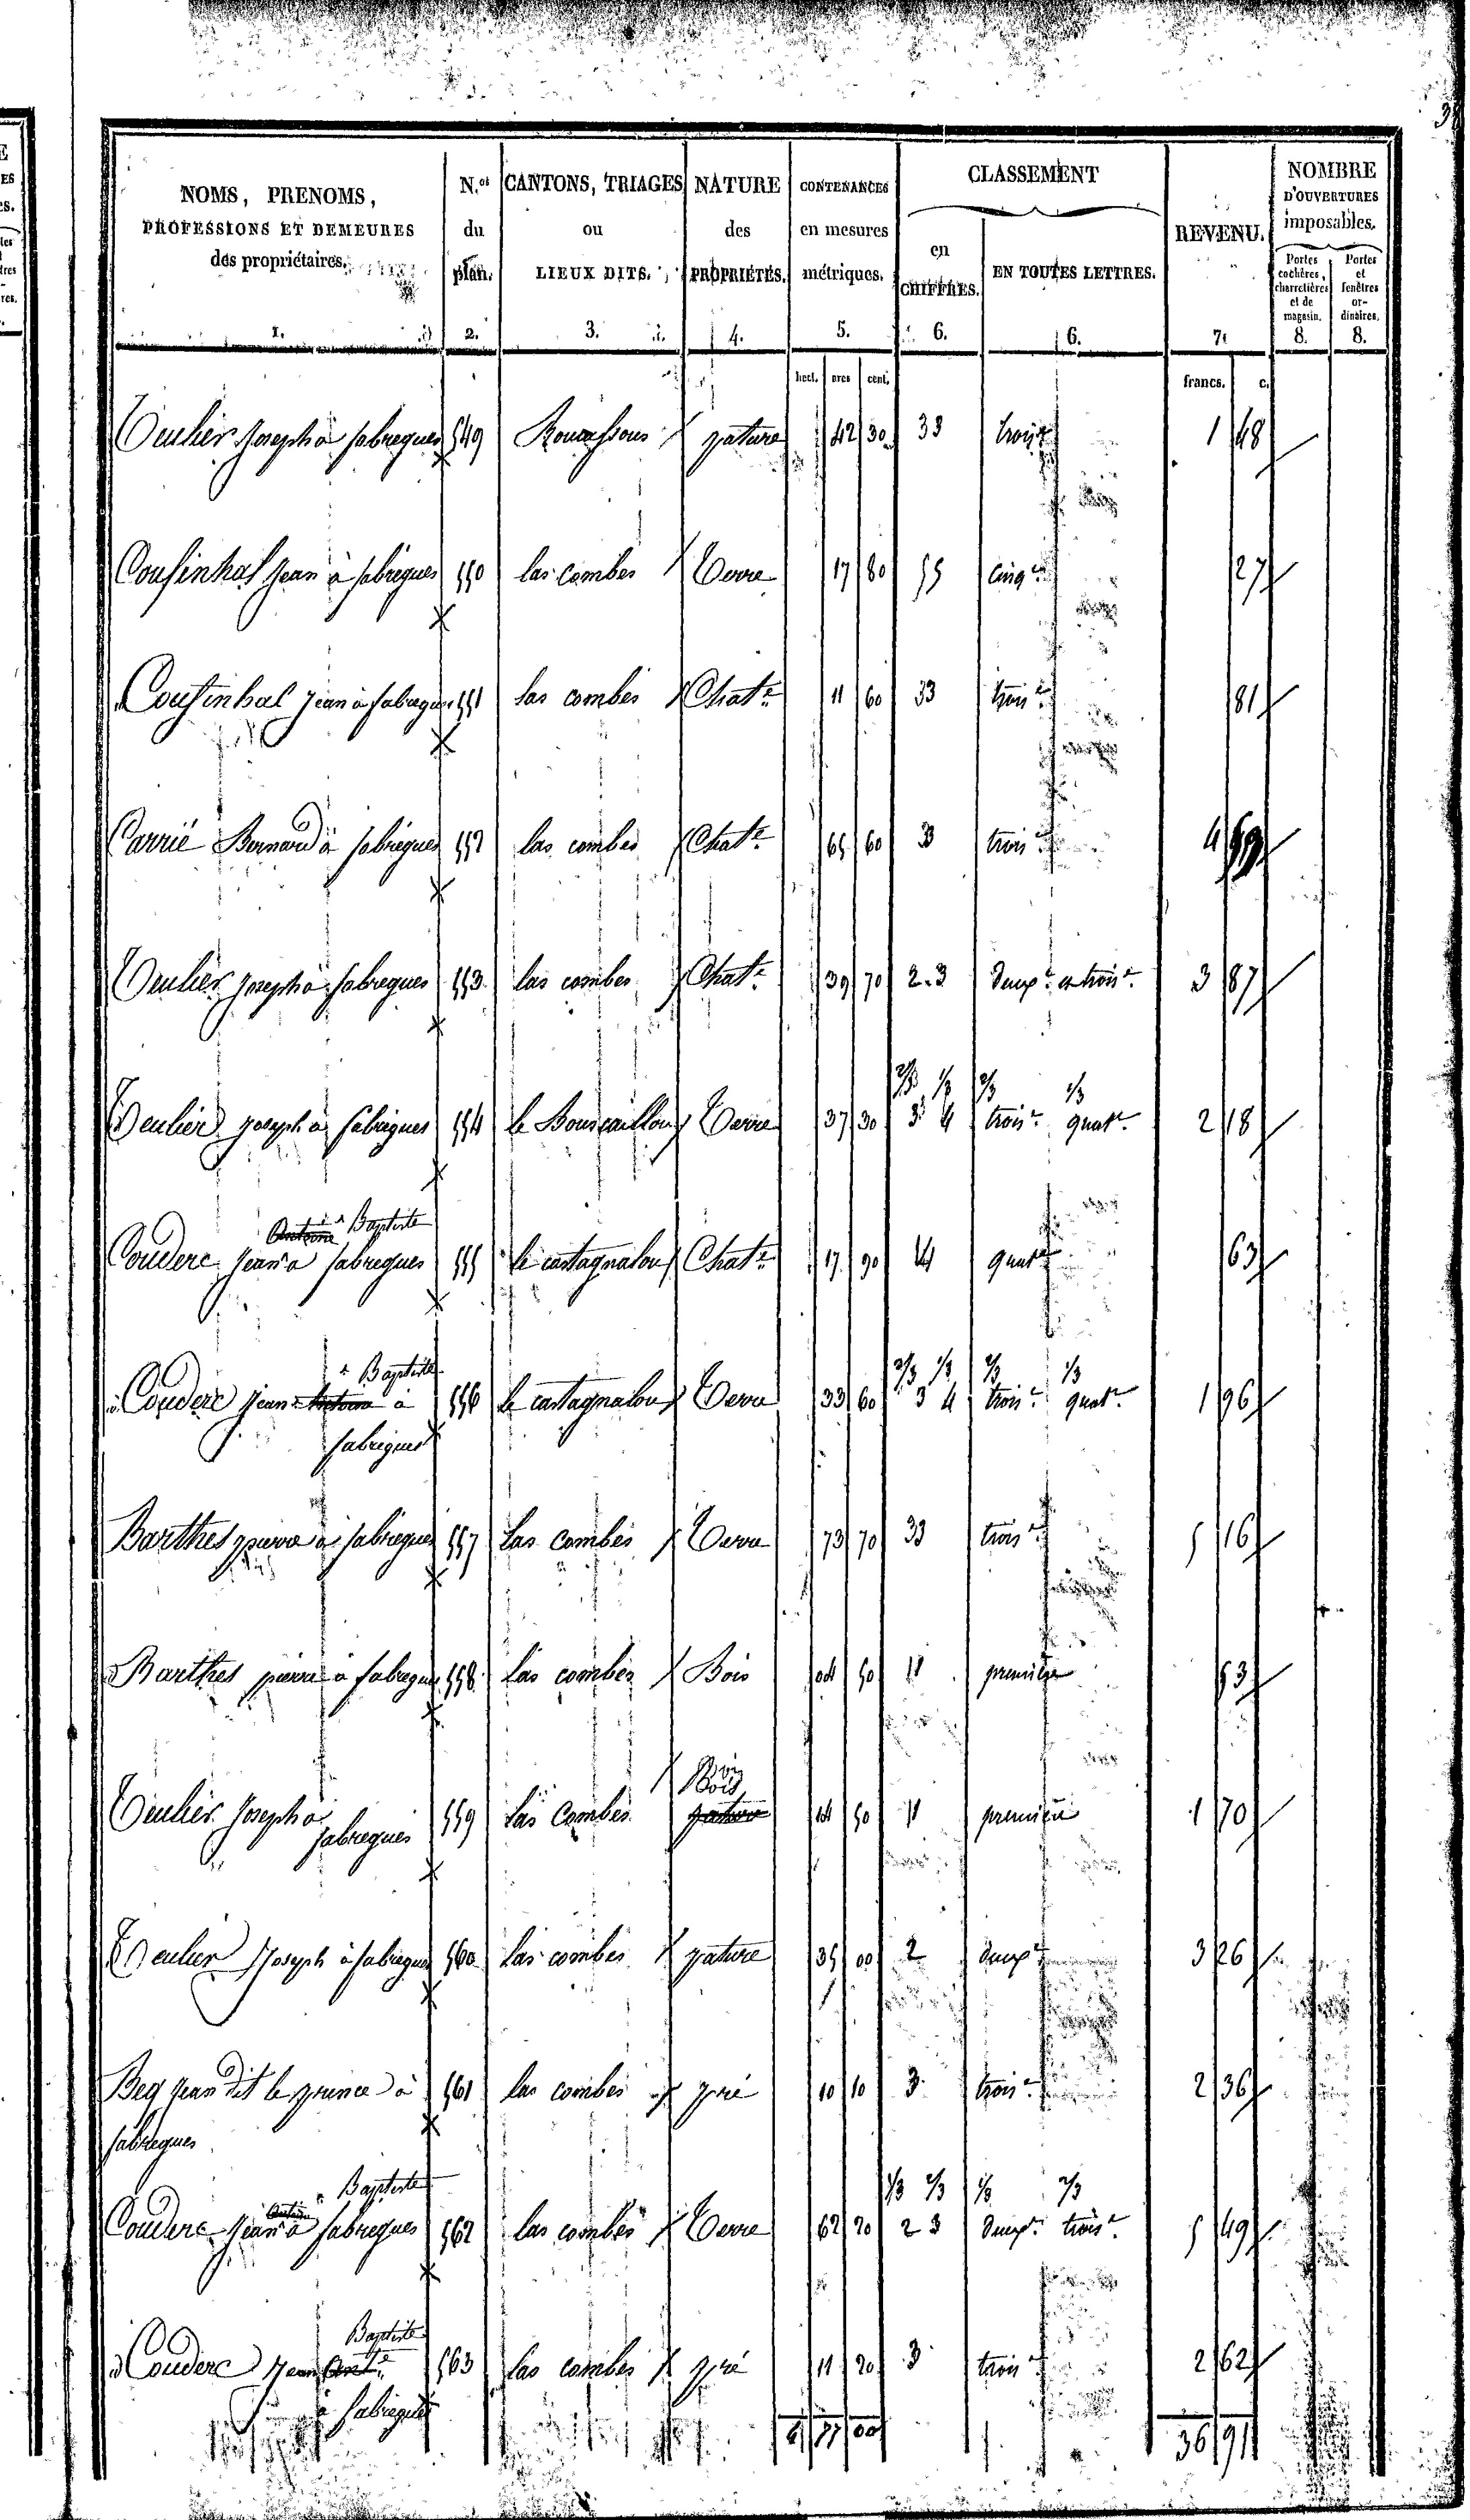 NOMS, PRENOMS, PROFESSIONS ET DEMEURES des propriétaires. N.os du plan. CANTONS, TRIAGES ou LIEUX DITS. NATURE des PROPRIÉTÉS. CONTENANCES en mesures métriques. CLASSEMENT en CHIFFRES. EN TOUTES LETTRES. REVENU. NOMBRE D'OUVERTURES imposables. Portes cochères, charretières et de magasin. Portes et fenêtres ordinaires.
1. 2. 3. 4. 5. 6. 6. 7. 8. 8.
hect. ares cent. francs. c.
Teulier Joseph à fabregues 549 pature 42 30 33 trois.e 1 48
Cousinhal Jean à fabregues 550 las combes Terre 17 80 55 cinq.e 27
Cousinhal Jean à fabregues 551 las combes Chat.e 11 60 33 trois.e 81
Carrié Bernard à fabregues 552 las combes Chat.e 65 60 3 trois.e 4
Teulier Joseph à fabregues 553 las combes Chat.e 39 70 2.3 deux.e et trois.e 3 87
2/3 1/3 2/3 1/3
Teulier Joseph à fabregues 554 Terre 37 30 3 4 trois.e quat.e 2 18
Antoine Baptiste
Couderc Jean à fabregues 555 le castagnalou Chat.e 17 90 4 quat.e 63
Baptiste 2/3 1/3 2/3 1/3
Couderc Jean Antoine à 556 le castagnalou Terre 33 60 3 4 trois.e quat.e 1 96
fabregues
Barthes pierre à fabregues 557 las combes Terre 73 70 33 trois.e 5 16
Barthes pierre à fabregues 558 las combes Bois 04 50 11 première 53
Bois
Teulier Joseph à 559 las Combes pature 14 50 11 première 1 70
fabregues
Teulier Joseph à fabregues 560 las combes pature 35 00 2 deux.e 3 26
Beq Jean dit le prince à 561 las combes pré 10 10 3 trois.e 2 36
fabregues
Baptiste 1/3 2/3 1/3 2/3
Couderc Jean Antoine à fabregues 562 las combes Terre 62 70 2 3 deux.e trois.e 5 49
Baptiste
Couderc Jean Ant.e 563 las combes pré 11 20 3 trois.e 2 62
à fabregues
36 91